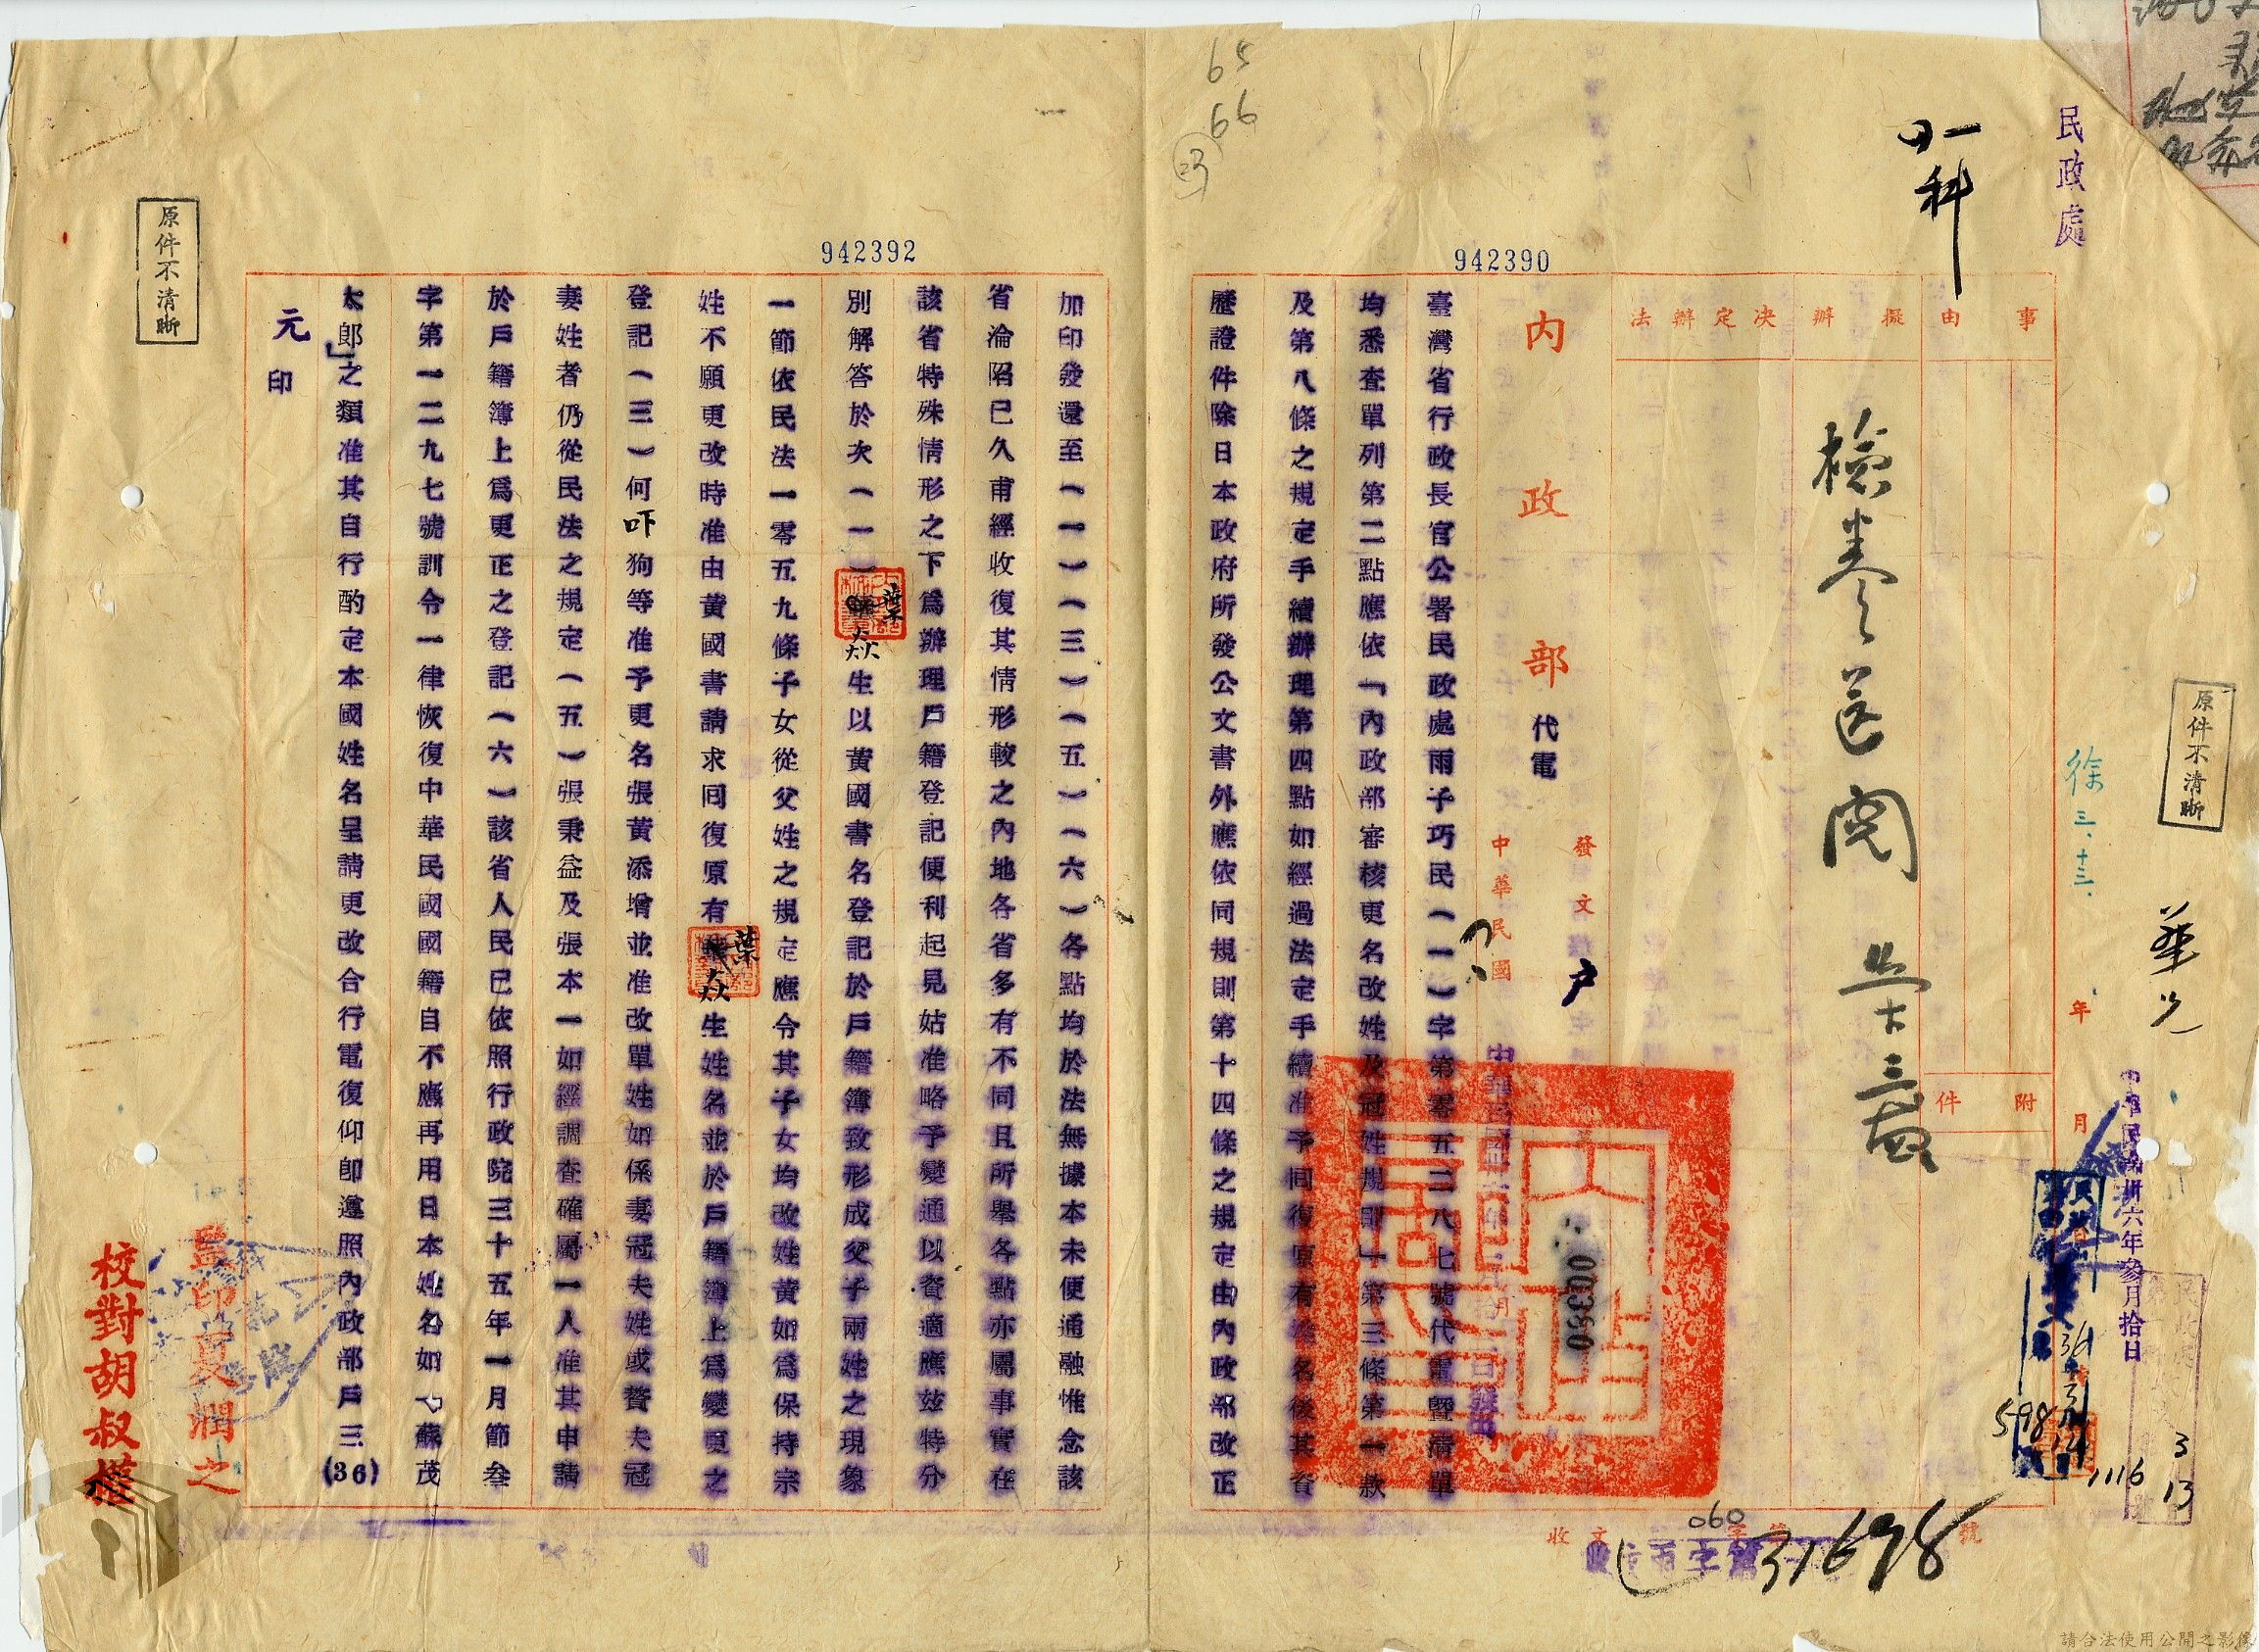 民政處
一科
原件不清晰
徐 三.十三.
年 月
中華民國卅六年參月拾日
3
13
36
598
1116
事由
擬辦
決定辦法
附件
檢卷送閱
內政部 代電
發文
戶
中華民國
00330
942390
臺灣省行政長官公署民政處雨子巧民(一)字第零五二八七號代電暨清單
均悉查單列第二點應依「內政部審核更名改姓及冠姓規則」第三條第一款
及第八條之規定手續辦理第四點如經過法定手續准予回復原有姓名後其資
歷證件除日本政府所發公文書外應依同規則第十四條之規定由內政部改正
收文 字第 號
060
31698
65
66
23
942392
加印發還至(一)(三)(五)(六)各點均於法無據本未便通融惟念該
省淪陷已久甫經收復其情形較之內地各省多有不同且所舉各點亦屬事實在
該省特殊情形之下為辦理戶籍登記便利起見姑准略予變通以資適應茲特分
別解答於次(一)葉焱生以黃國書名登記於戶籍簿致形成父子兩姓之現象
一節依民法一零五九條子女從父姓之規定應令其子女均改姓黃如為保持宗
姓不願更改時准由黃國書請求回復原有葉焱生姓名並於戶籍簿上為變更之
登記(三)何吓狗等准予更名張黃添增並准改單姓如係妻冠夫姓或贅夫冠
妻姓者仍從民法之規定(五)張秉益及張本一如經調查確屬一人准其申請
於戶籍簿上為更正之登記(六)該省人民已依照行政院三十五年一月節叁
字第一二九七號訓令一律恢復中華民國國籍自不應再用日本姓名如「蘇茂
太郎」之類准其自行酌定本國姓名呈請更改合行電復仰即遵照內政部戶三(36)
元印
原件不清晰
監印夏潤之
校對胡叔權
請合法使用公開之影像